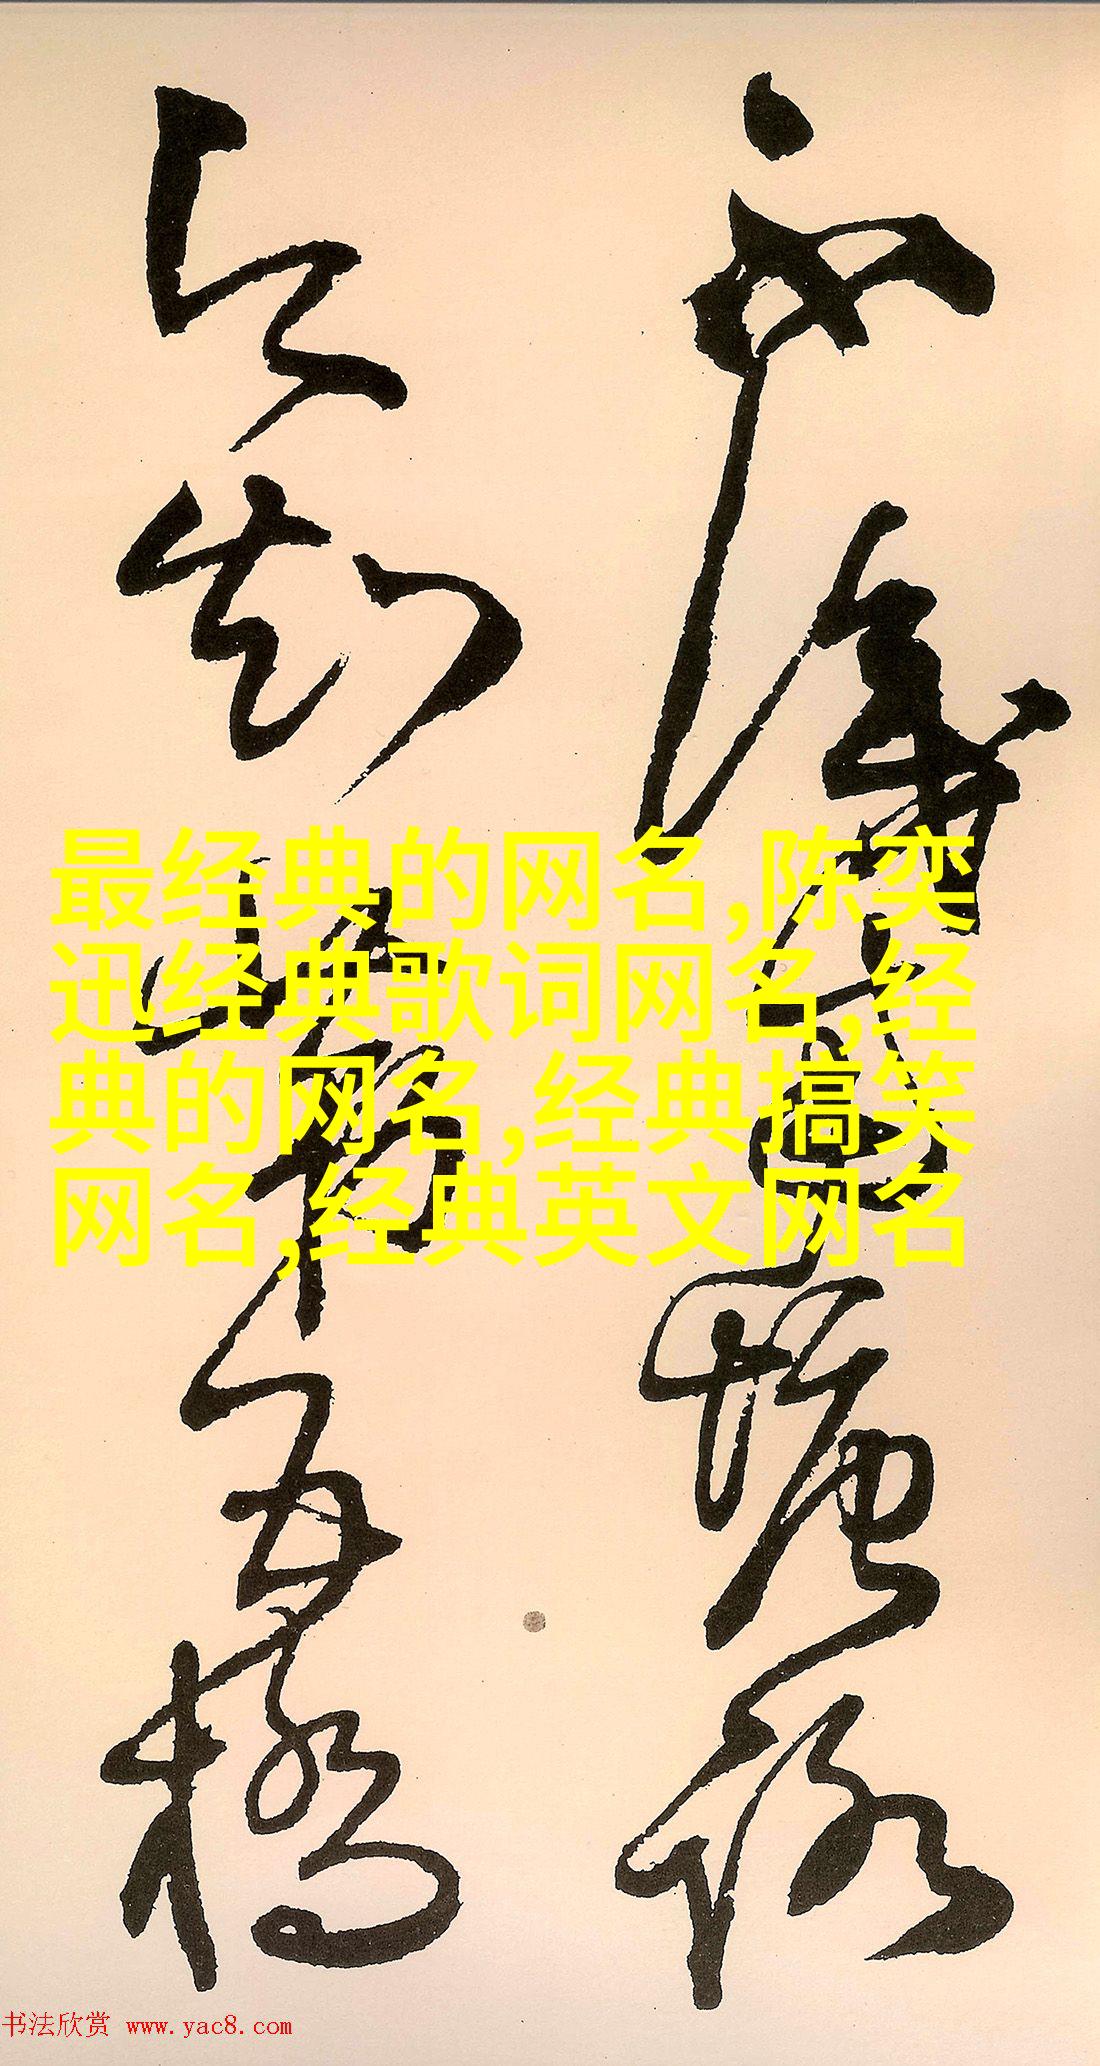 不識南塘路
今知第五橋
最经典的网名,陈奕
迅经典歌词网名,经
典的网名,经典搞笑
网名,经典英文网名
书法欣赏 www.yac8.com